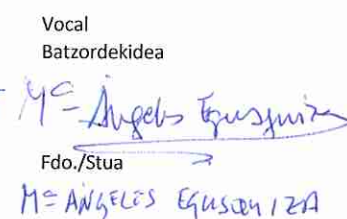 Vocal
Batzordekidea
Mª Ángeles Egusquiza
Fdo./Stua
Mª ANGELES EGUSQUIZA